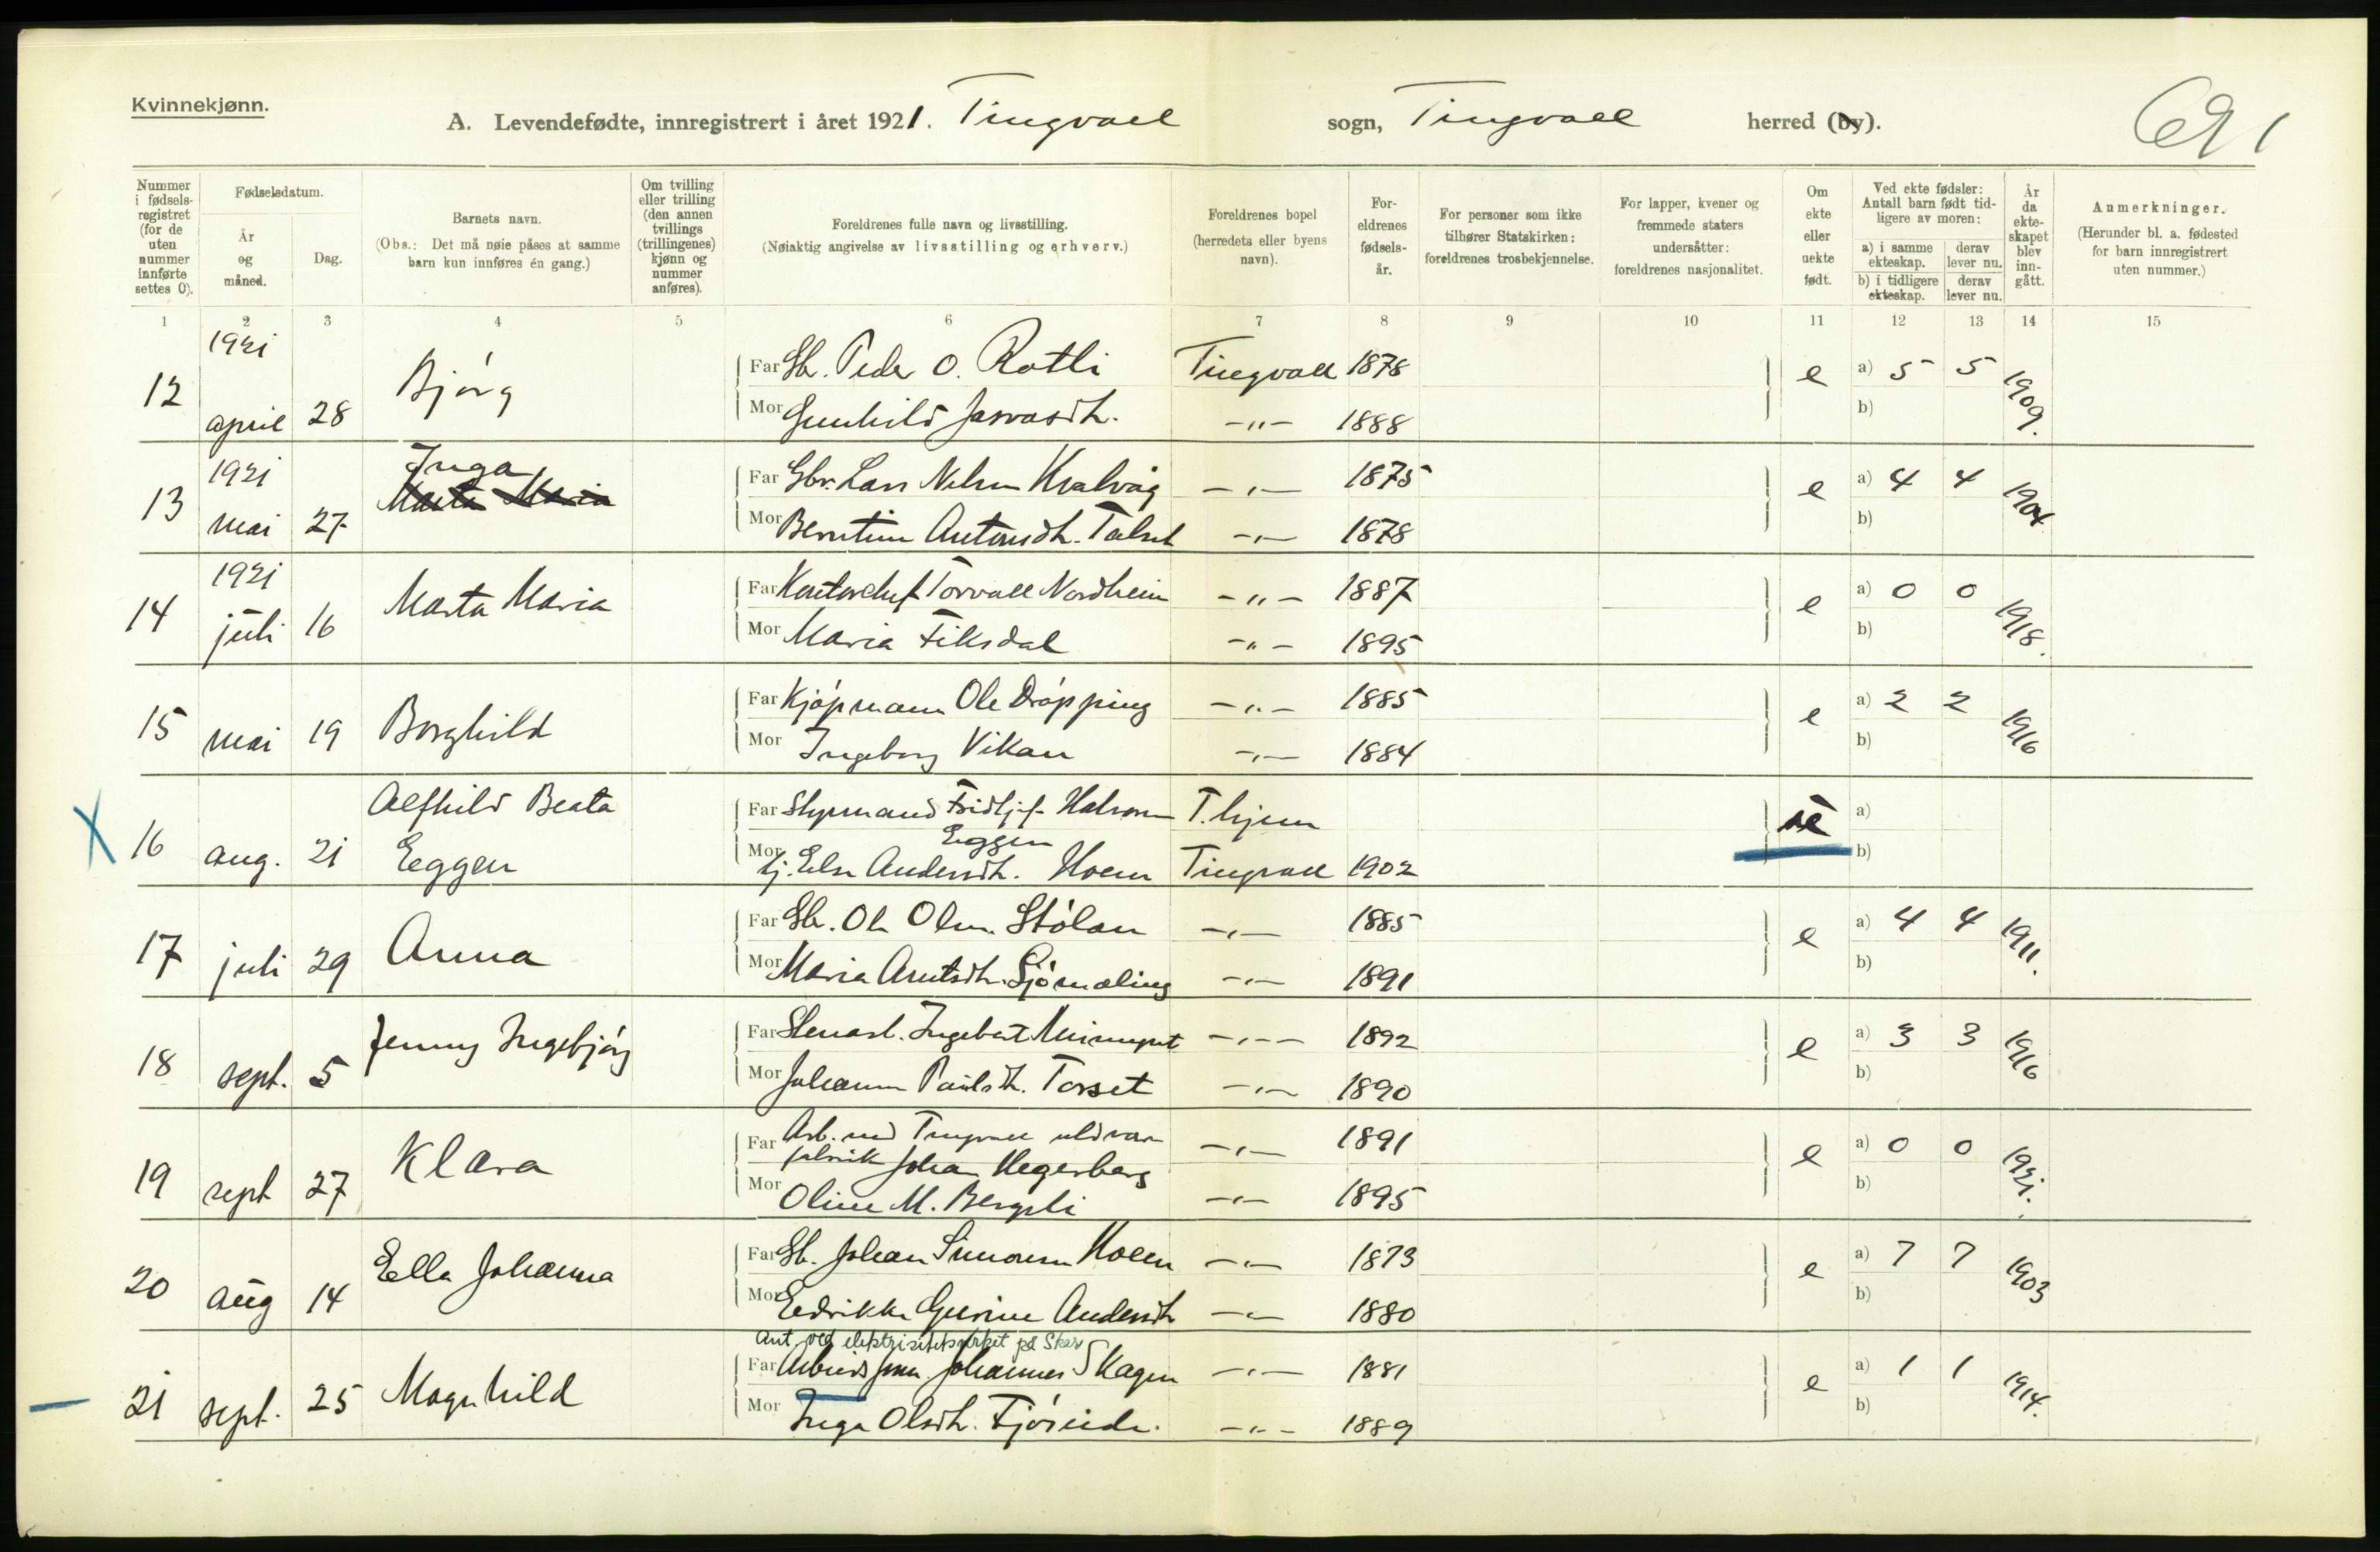 Kvinnekjønn.
A. Levendefødte, innregistrert i året 1921. Tingvoll sogn, Tingvoll herred (by).
691
Nummer i fødselsregistret (for de uten nummer innførte settes 0).
Fødselsdatum.
År og måned.
Dag.
Barnets navn.
(Obs.: Det må nøie påses at samme barn kun innføres én gang.)
Om tvilling eller trilling (den annen tvillings (trillingenes) kjønn og nummer anføres).
Foreldrenes fulle navn og livsstilling.
(Nøiaktig angivelse av livsstilling og erhverv.)
Foreldrenes bopel (herredets eller byens navn).
Foreldrenes fødselsår.
For personer som ikke tilhører Statskirken: foreldrenes trosbekjennelse.
For lapper, kvener og fremmede staters undersåtter: foreldrenes nasjonalitet.
Om ekte eller uekte født.
Ved ekte fødsler: Antall barn født tidligere av moren:
a) i samme ekteskap. derav lever nu.
b) i tidligere ekteskap. derav lever nu.
År da ekteskapet blev inngått.
Anmerkninger.
(Herunder bl. a. fødested for barn innregistrert uten nummer.)
1 2 3 4 5 6 7 8 9 10 11 12 13 14 15
1921
12 april 28 Bjørg
Far Gbr. Peder O. Rotli Tingvoll 1878 e a) 5 5 1909.
Mor Gunhild Jasvasdt. -„- 1888 b)
1921
13 mai 27 Inga
Marta Maria
Far Gbr. Lars Nilsen Kvalvåg -„- 1875 e a) 4 4 1904
Mor Berntine Antonsdt. Talset -„- 1878 b)
1921
14 juli 16 Marta Maria
Far Kontorchef Torvall Nordheim -„- 1887 e a) 0 0 1918.
Mor Maria Fiksdal -„- 1895 b)
15 mai 19 Borghild
Far Kjøpmann Ole Drøpping -„- 1885 e a) 2 2 1916
Mor Ingeborg Vikan -„- 1884 b)
X 16 aug. 21 Alfhild Beata
Eggen
Far Styrmand Fridtjof Halvorsen T.hjem a)
Eggen
Mor Tj. Else Andersdt. Hoem Tingvoll 1902 b)
17 juli 29 Anna
Far Gbr. Ole Olsen Stølan -„- 1885 e a) 4 4 1911.
Mor Maria Arntsdt. Gjørnæling -„- 1891 b)
18 sept. 5 Jenny Ingebjørg
Far Stenarb. Ingebert -„- 1892 e a) 3 3 1916
Mor Johanna Paulsdt. Torset -„- 1890 b)
19 sept 27 Klara
Far Arb. ved Tingvoll uldvare
fabrik Johan Hegerberg -„- 1891 e a) 0 0 1921.
Mor Oline M. Bergsli -„- 1895 b)
20 aug 14 Ella Johanna
Far Gb. Johan Simonsen Hoem -„- 1873 e a) 7 7 1903
Mor Edrikke Gurine Andersdt -„- 1880 b)
Ant. ved elektrisitetsverket på Skar
21 sept. 25 Magnhild
Far Arbeidsform Johannes Skagen -„- 1881 e a) 1 1 1914.
Mor Inga Olsdt. Fjøseide. -„- 1889 b)